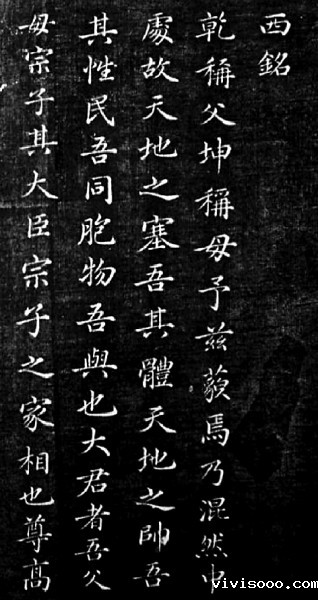 西銘
乾稱父坤稱母予茲藐焉乃混然中
處故天地之塞吾其體天地之帥吾
其性民吾同胞物吾與也大君者吾父
母宗子其大臣宗子之家相也尊高
vivisooo.com